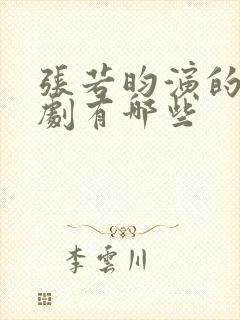 張若昀演的
劇有哪些
李雲川